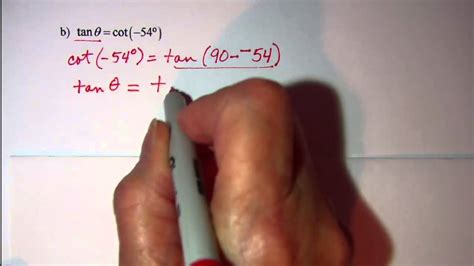 b) tanθ=cot(−54°)
cot(−54°) = tan(90-⁻54)
tanθ = t